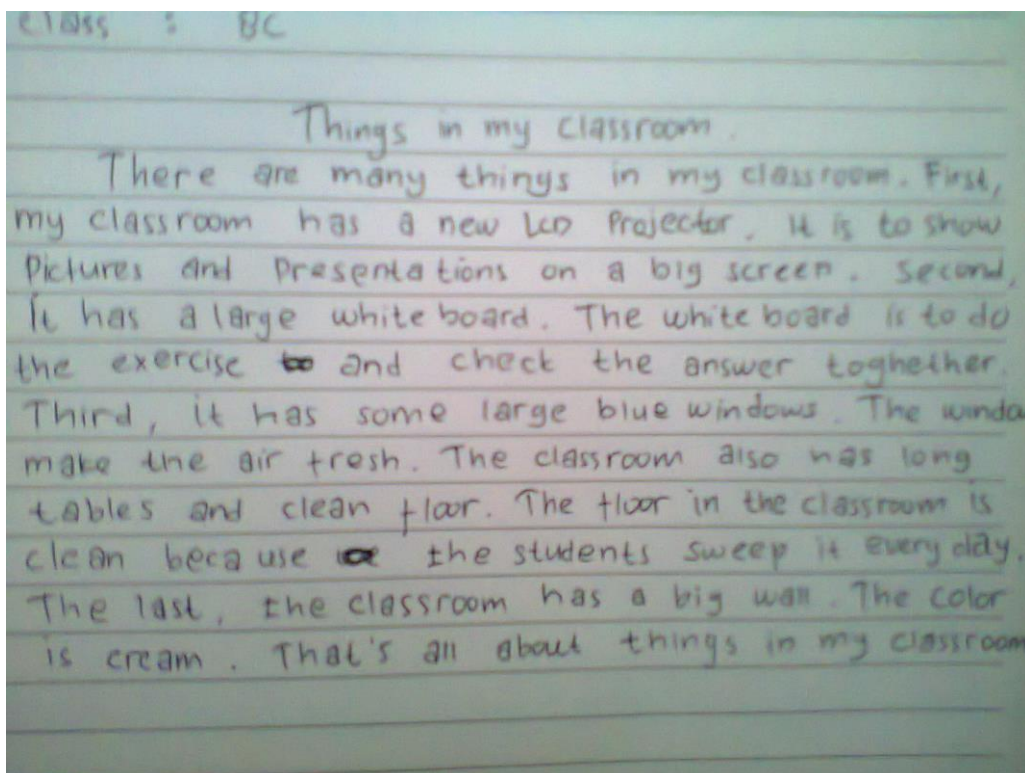 class : 8C
Things in my classroom.
There are many things in my classroom. First,
my classroom has a new LCD Projector. It is to show
Pictures and Presentations on a big screen. Second,
It has a large white board. The white board is to do
the exercise and check the answer toghether.
Third, it has some large blue windows. The windo
make the air fresh. The classroom also has long
tables and clean floor. The floor in the classroom is
clean because the students sweep it every day.
The last, the classroom has a big wall. The color
is cream. That's all about things in my classroom